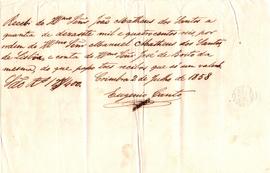 Recebi do Illmo Snr João Matheus dos Santos a
quantia de dezasette mil e quatrocentos reis por
ordem do Illmo Snr Manuel Matheus dos Santos
de Lisboa, e conta do Illmo Snr José de
mesma, do que passo dois recibos que só um valerá
São Rs 17$400. Coimbra 2 de Julho de 1858
Eugenio